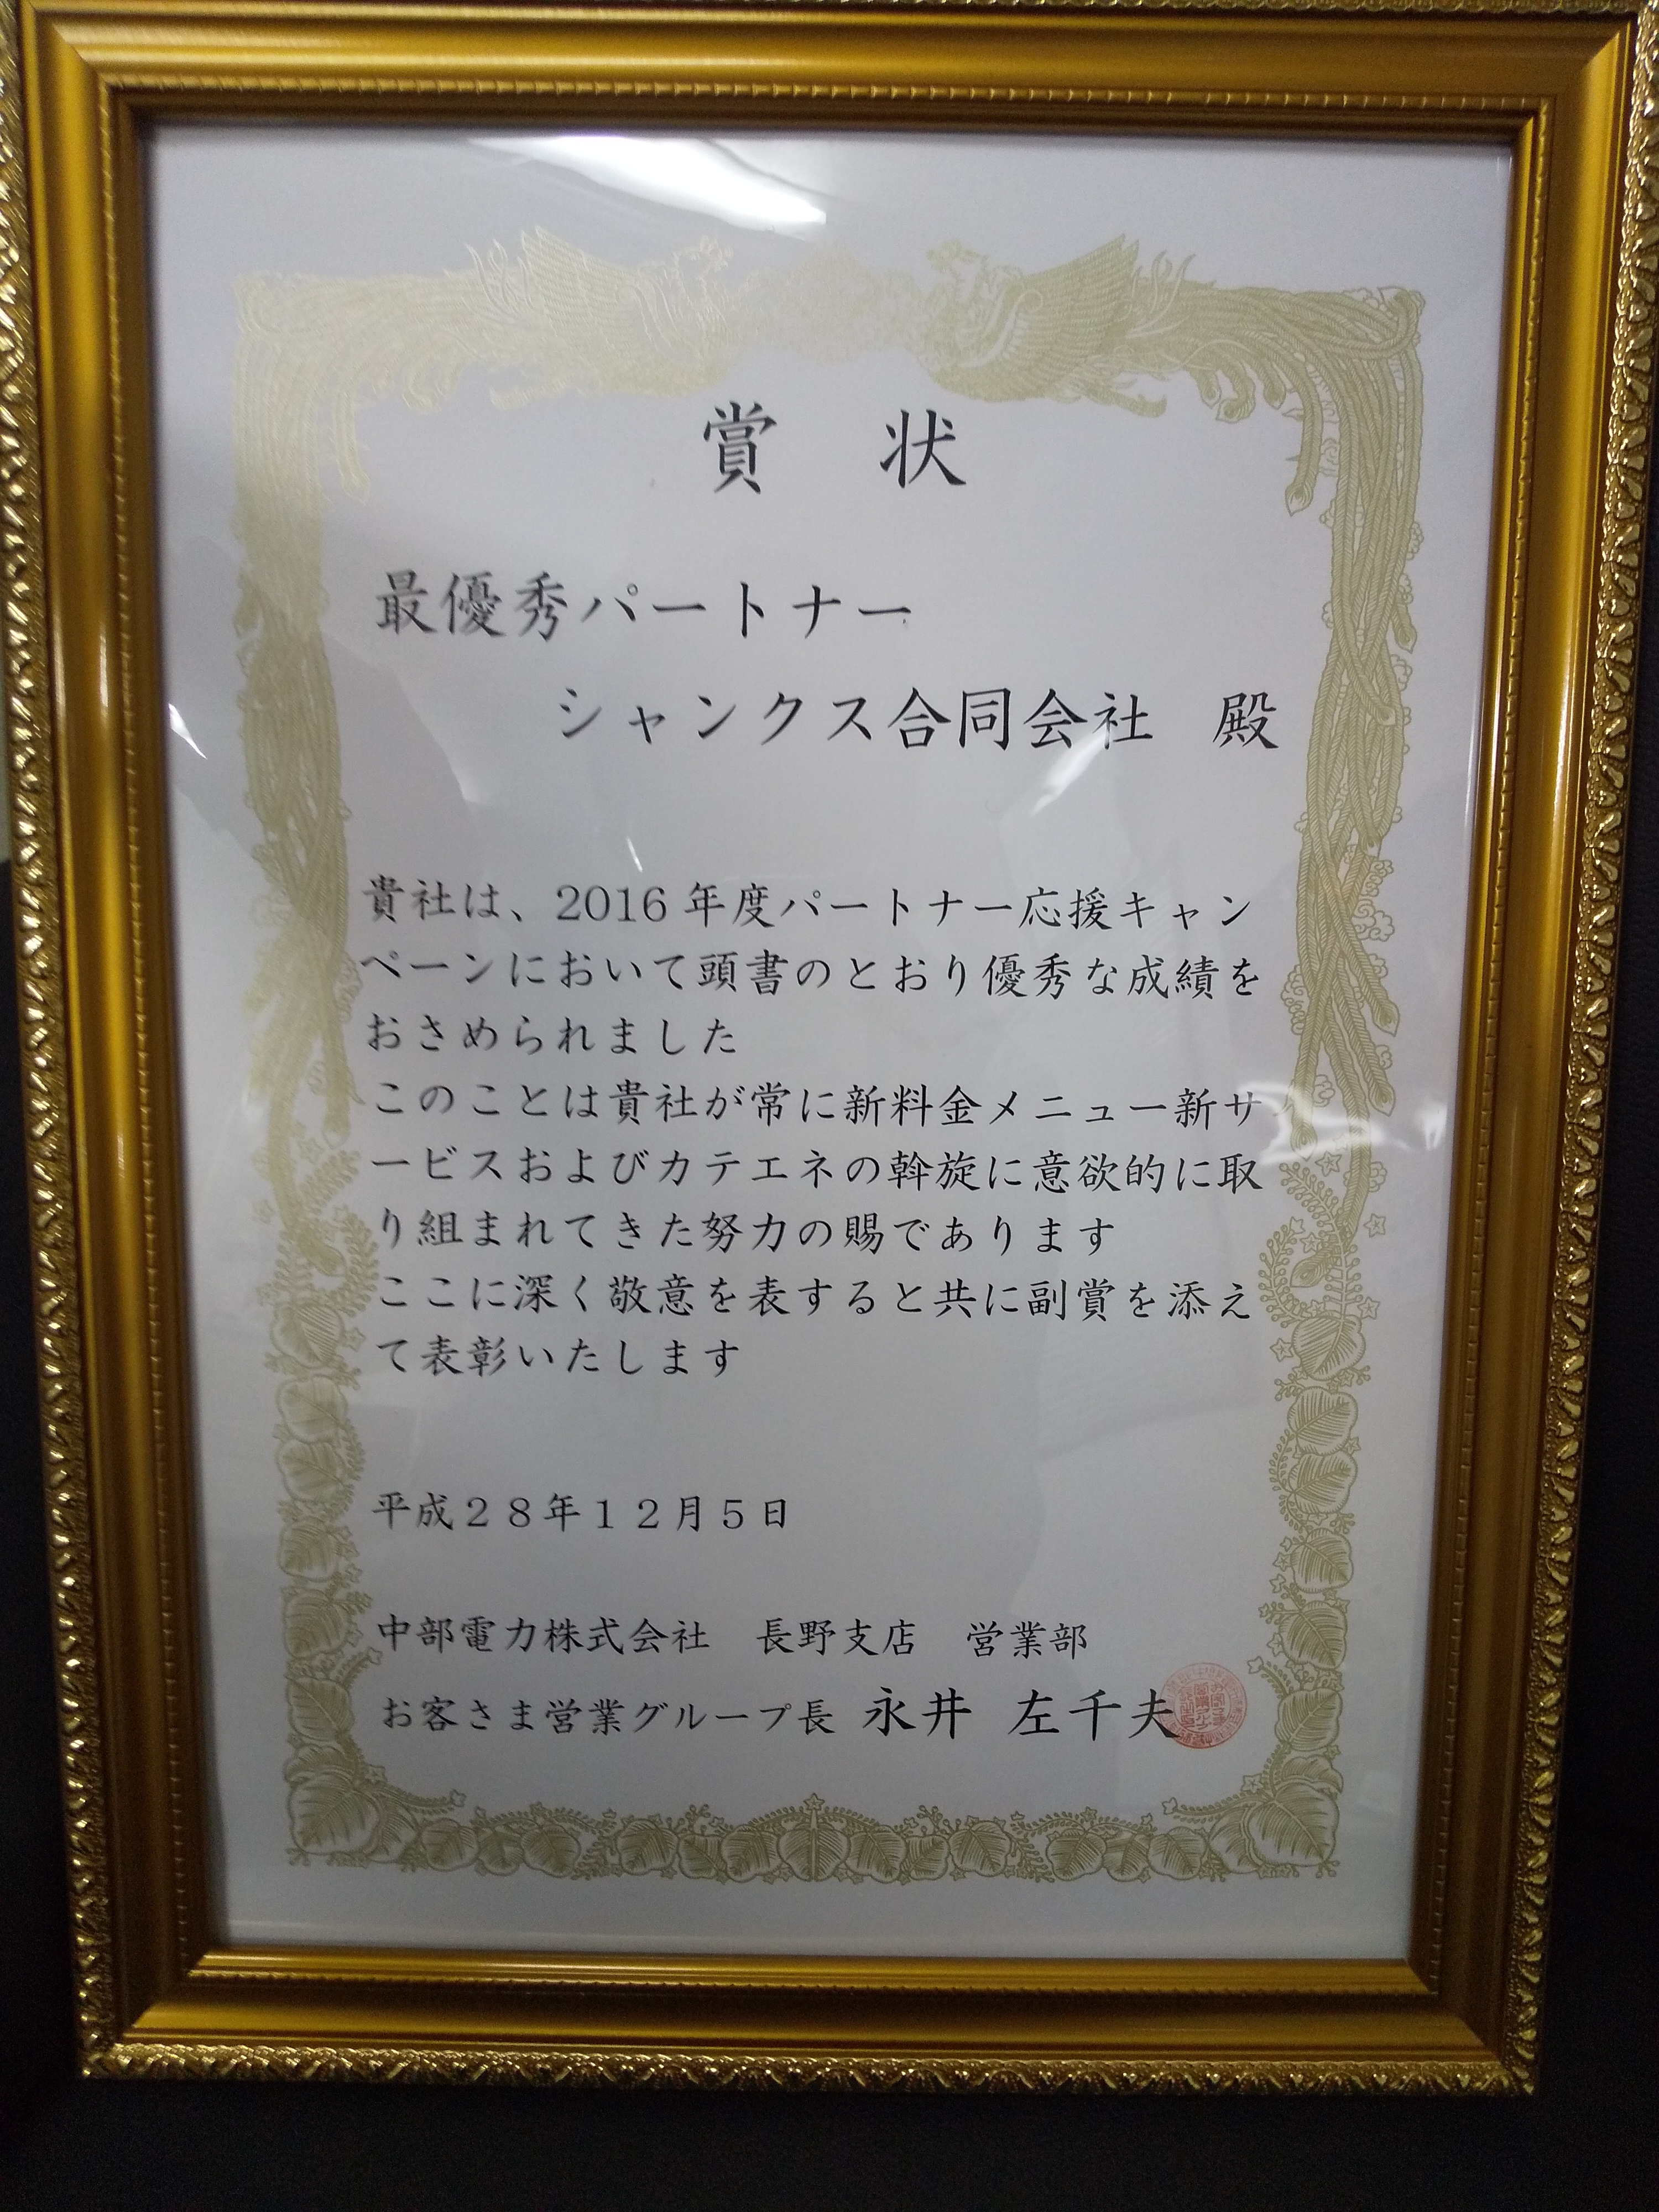 賞　状
最優秀パートナー
シャンクス合同会社　殿
貴社は、2016 年度パートナー応援キャン
ペーンにおいて頭書のとおり優秀な成績を
おさめられました
このことは貴社が常に新料金メニュー新サ
ービスおよびカテエネの斡旋に意欲的に取
り組まれてきた努力の賜であります
ここに深く敬意を表すると共に副賞を添え
て表彰いたします
平成２８年１２月５日
中部電力株式会社　長野支店　営業部
お客さま営業グループ長 永井　左千夫